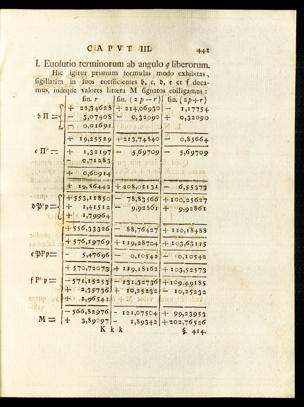 CAPVT III. 441
I. Euolutio terminorum ab angulo q liberorum.
Hic igitur primum formulas modo exhibitas,
sigillatim in suos coefficientes b, c, d, e et f ducamus, indeque valores littera M signatos colligamus:
sin. r | sin. (2p—r) | sin. (2p+r)
+ 22,34628 | + 214,06930 | — 1,17754
b Π = — 3,07408 | — 0,32090 | + 0,32090
— 0,01691
+ 19,25529 | +213,74840 | — 0,85664
c Π' = — 1,32197 | — 5,69709 | — 5,69709
+ 0,71283
+ 0,60914
+ 19,86443 | + 208,05131 | — 6,55373
+ 553,11850 | — 78,83566 | + 100,25627
+ 1,41512 | — 9,92861 | + 9,92861
+ 1,79964
+556,33326 | — 88,76427 | + 110,18488
+ 576,19769 | + 119,28704 | + 103,63115
— 5,47696 | — 0,10542 | — 0,10542
+ 570,72073 | + 119,18162 | + 103,52573
—571,15253 | — 131,32736 | +109,49185
+ 2,35736 | + 10,25232 | — 10,25232
+ 1,96541
—566,82976 | — 121,07504 | + 99,23953
M = + 3,89097 | — 1,89342 | + 202,76526
K k k §. 414.